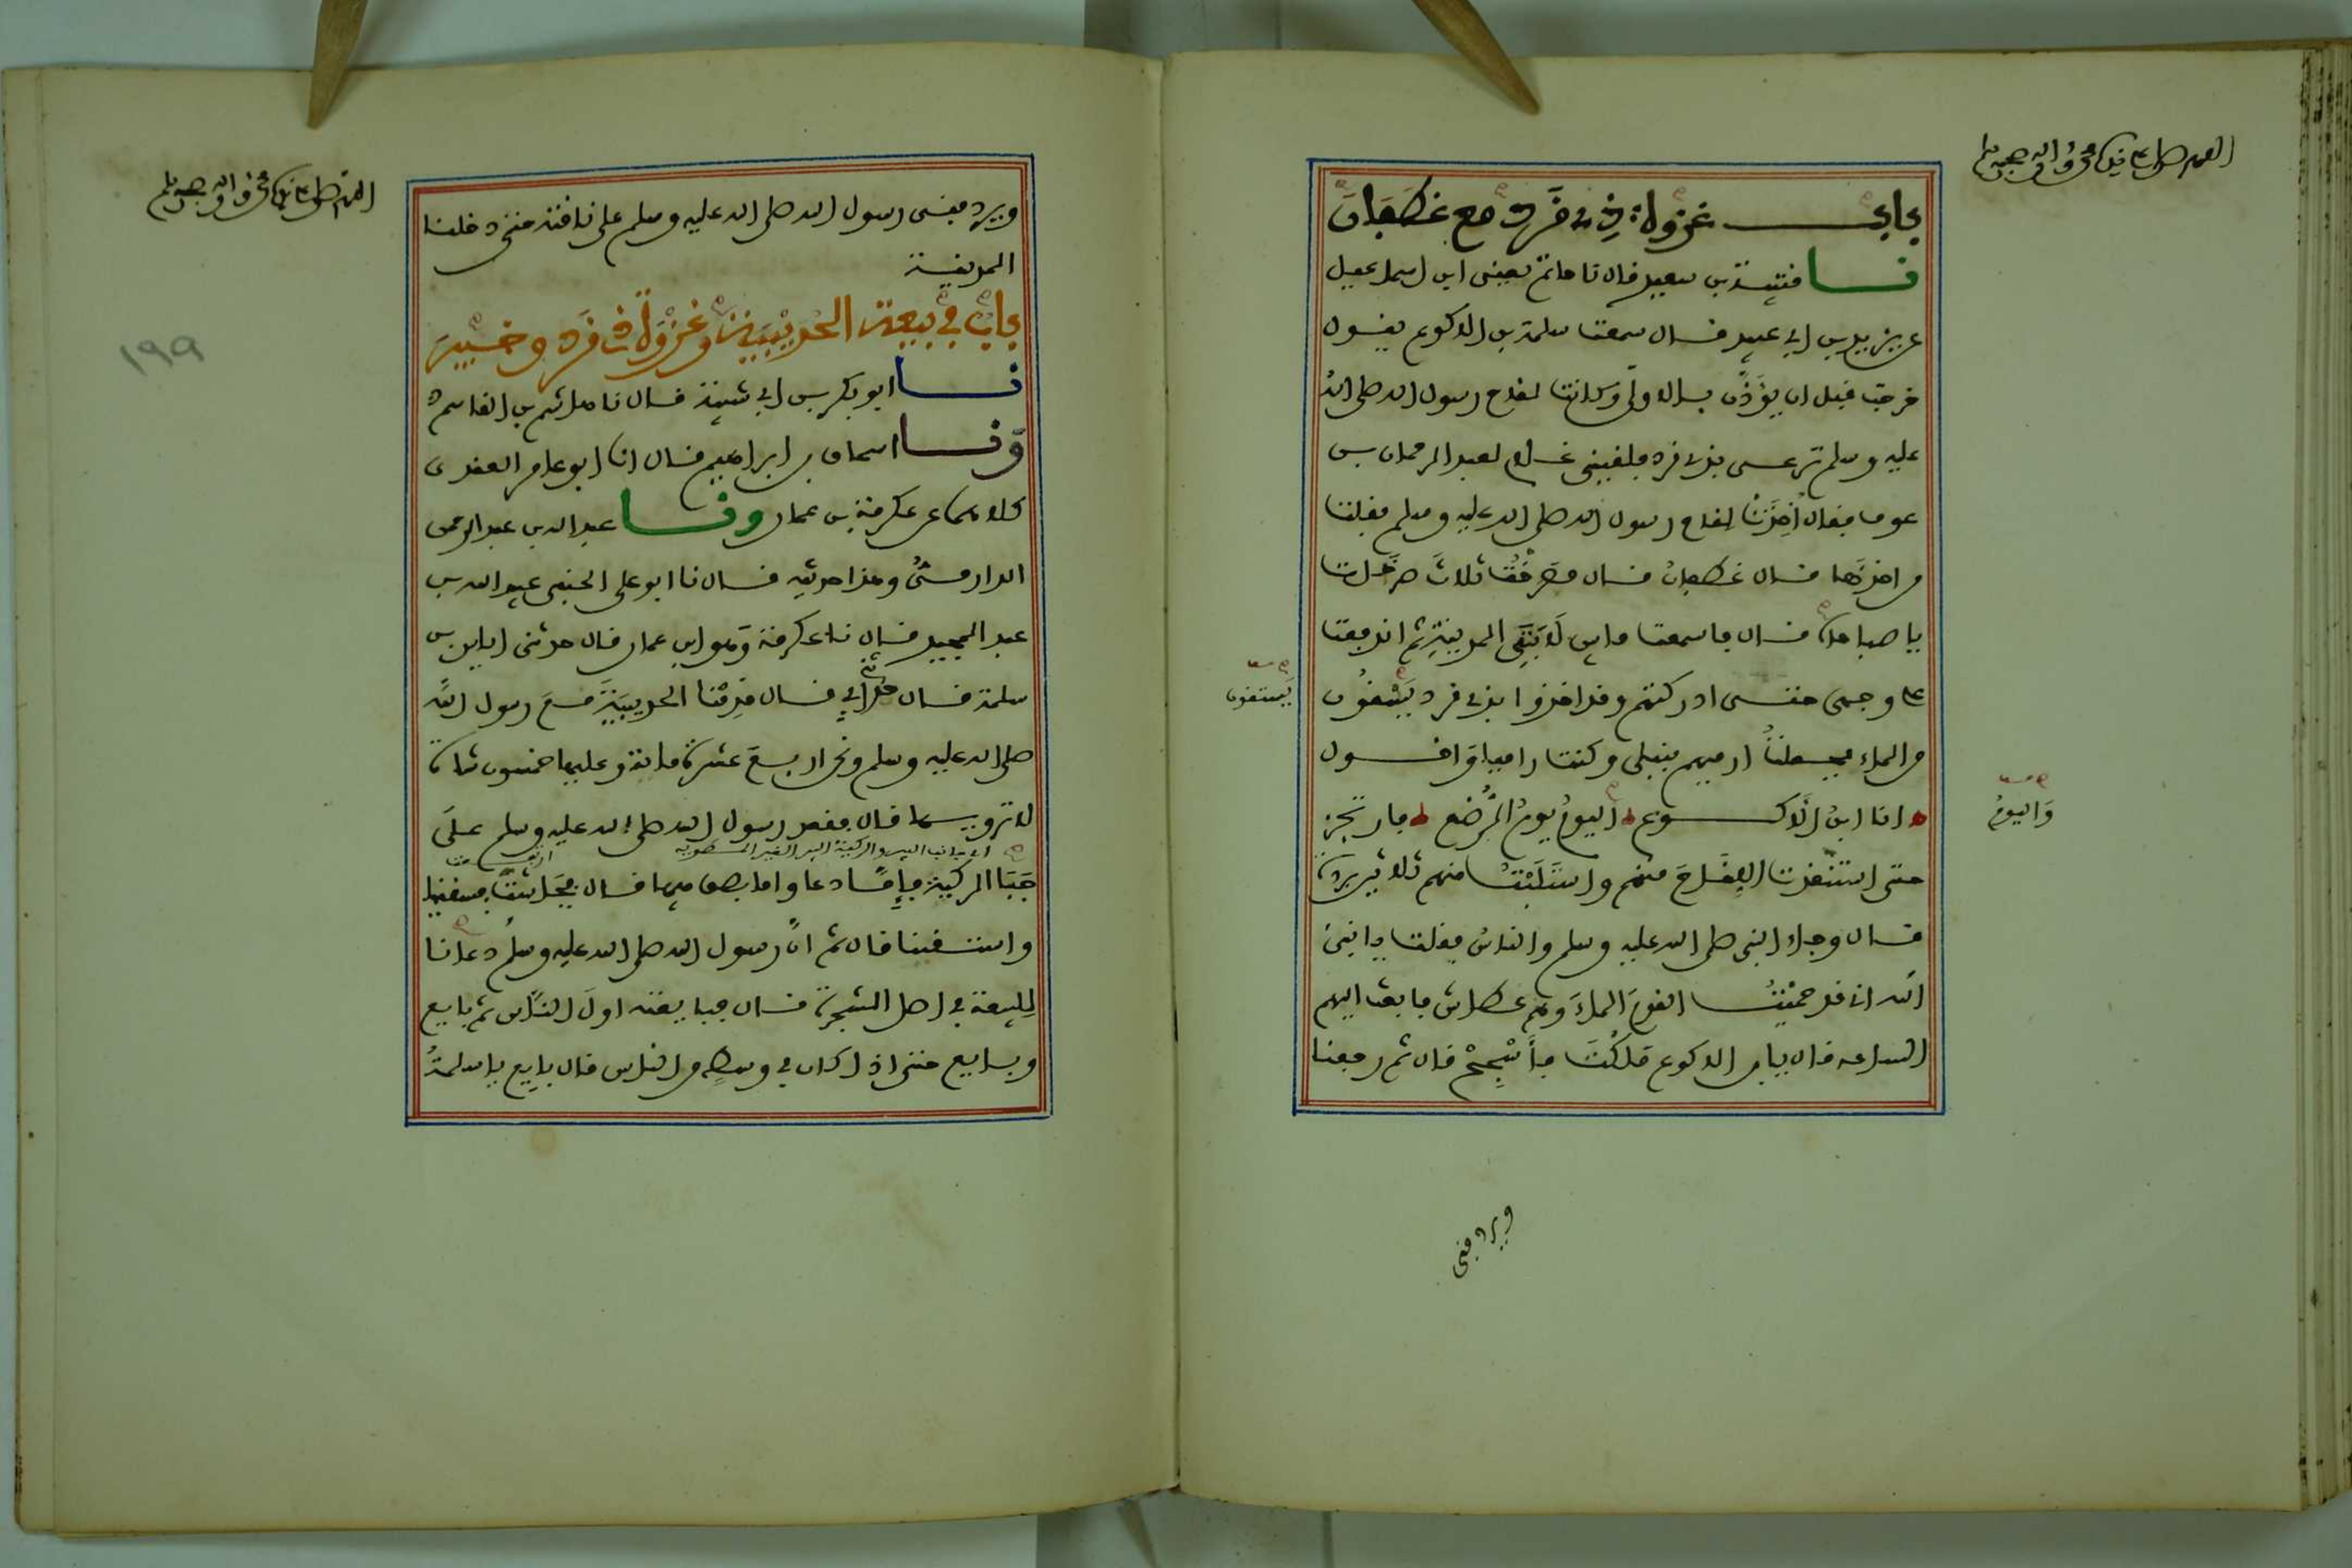 اللهم صل على نبيك محمد وآله وصحبه وسلم
باب غزوة ذي قرد مع غطفان
نا قتيبة بن سعيد قال نا حاتم يعني ابن اسماعيل
عن يزيد بن ابي عبيد قال سمعت سلمة بن الاكوع يقول
خرجت قبل ان يؤذن بالاولى وكانت لقاح رسول الله صلى الله
عليه وسلم ترعى بذي قرد فلقيني غلام لعبد الرحمان بن
عوف فقال اُخِذَتْ لقاح رسول الله صلى الله عليه وسلم فقلت
من اخذها قال غطفان قال فصرخت ثلاث صرخات
يا صباحاه قال فاسمعت ما بين لابتي المدينة ثم اندفعت
على وجهي حتى ادركتهم وقد اخذوا بذي قرد يَسْقُون
يستقون
من الماء فجعلت ارميهم بنبلي وكنت راميا واقول
انا ابن الاكوع اليوم يوم الرضع فارتجز
وَاليومُ
حتى استنقذت اللقاح منهم واستلبت منهم ثلاثين بردة
قال وجاء النبي صلى الله عليه وسلم والناس فقلت يا نبي
الله اني قد حميت القوم الماء وهم عطاش فابعث اليهم
الساعة فقال يا ابن الاكوع ملكت فأسجح قال ثم رجعنا
ويردفني
اللهم صل على نبيك محمد وآله وصحبه وسلم
١٩٩
ويردفني رسول الله صلى الله عليه وسلم على ناقته حتى دخلنا
المدينة
باب في بيعة الحديبية وغزوة ذي قرد وخيبر
نا ابو بكر بن ابي شيبة قال نا هاشم بن القاسم ح
ونا اسحاق بن ابراهيم قال انا ابو عامر العقدي
كلاهما عن عكرمة بن عمار ونا عبد الله بن عبد الرحمن
الدارمي وهذا حديثه قال نا ابو علي الحنفي عبيد الله بن
عبد المجيد قال نا عكرمة وهو ابن عمار قال حدثني اياس بن
سلمة قال حدثني ابي قال قدمنا الحديبية مع رسول الله
صلى الله عليه وسلم ونحن اربع عشرة مائة وعليها خمسون شاة
لا ترويها قال فقعد رسول الله صلى الله عليه وسلم على
جبا الركية فإما دعا واما بصق فيها قال فجاشت فسقينا
واستقينا قال ثم ان رسول الله صلى الله عليه وسلم دعانا
للبيعة في اصل الشجرة قال فبايعته اول الناس ثم بايع
وبايع حتى اذا كان في وسط من الناس قال بايع يا سلمة